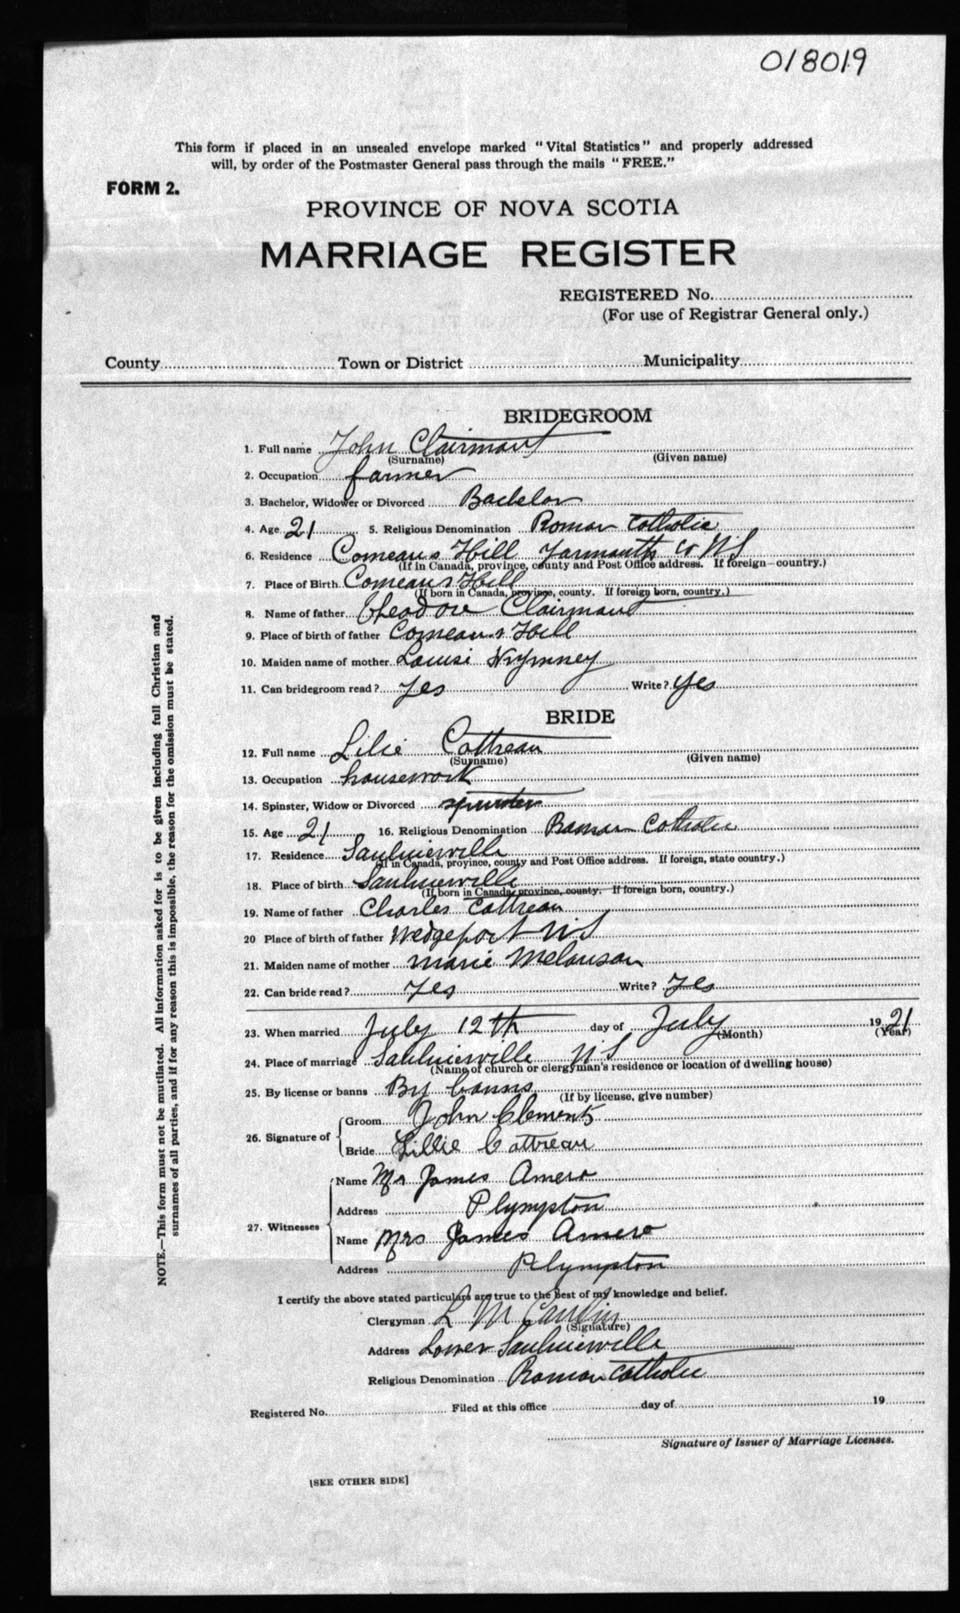 018019
This form if placed in an unsealed envelope marked "Vital Statistics" and properly addressed
will, by order of the Postmaster General pass through the mails "FREE."
FORM 2.
PROVINCE OF NOVA SCOTIA
MARRIAGE REGISTER
REGISTERED No.
(For use of Registrar General only.)
County Town or District Municipality
BRIDEGROOM
1. Full name John Clairmont
(Surname) (Given name)
2. Occupation farmer
3. Bachelor, Widower or Divorced Bachelor
4. Age 21 5. Religious Denomination Roman Catholic
6. Residence Comeaus Hill Yarmouth Co NS
(If in Canada, province, county and Post Office address. If foreign—country.)
7. Place of Birth Comeaus Hill
(If born in Canada, province, county. If foreign born, country.)
8. Name of father Theodore Clairmont
9. Place of birth of father Comeaus Hill
10. Maiden name of mother Louisi
11. Can bridegroom read? Yes Write? Yes
BRIDE
12. Full name Lilie Cottreau
(Surname) (Given name)
13. Occupation housework
14. Spinster, Widow or Divorced spinster
15. Age 21 16. Religious Denomination Roman Catholic
17. Residence Saulnierville
(If in Canada, province, county and Post Office address. If foreign, state country.)
18. Place of birth Saulnierville
(If born in Canada, province, county. If foreign born, country.)
19. Name of father Charles Cottreau
20 Place of birth of father Wedgeport NS
21. Maiden name of mother Marie Melanson
22. Can bride read? Yes Write? Yes
23. When married July 12th day of July 1921
(Month) (Year)
24. Place of marriage Saulnierville NS
(Name of church or clergyman's residence or location of dwelling house)
25. By license or banns By banns
(If by license, give number)
26. Signature of Groom John Clements
Bride Lillie Cottreau
27. Witnesses Name Mr James Amero
Address Plympton
Name Mrs James Amero
Address Plympton
I certify the above stated particulars are true to the best of my knowledge and belief.
Clergyman L M
(Signature)
Address Lower Saulnierville
Religious Denomination Roman Catholic
Registered No. Filed at this office day of 19
Signature of Issuer of Marriage Licenses.
[SEE OTHER SIDE]
NOTE.—This form must not be mutilated. All information asked for is to be given including full Christian and
surnames of all parties, and if for any reason this is impossible, the reason for the omission must be stated.